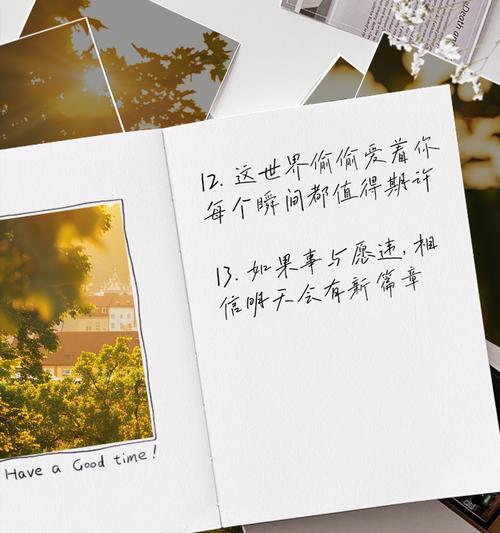 Death an
12. 这世界偷偷爱着你
每个瞬间都值得期许
13. 如果事与愿违,相
信明天会有新篇章
Have a Good time!